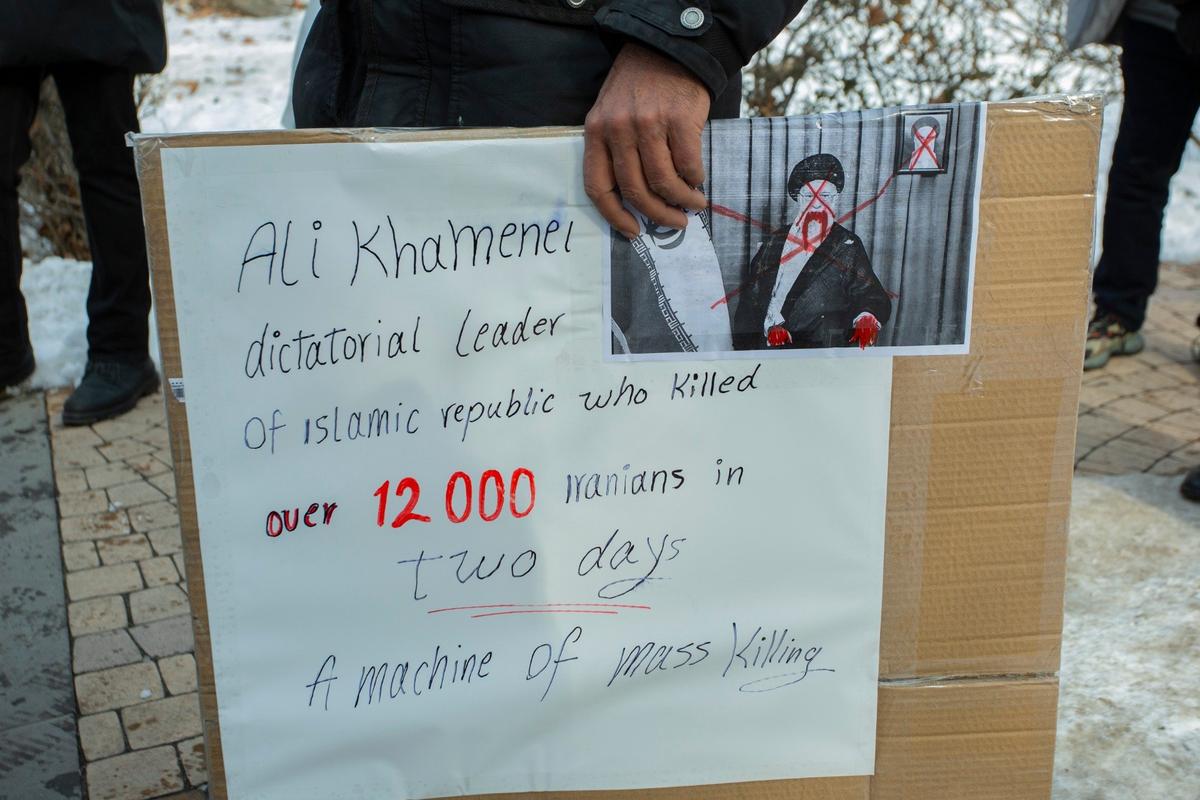 Ali Khamenei
dictatorial leader
of islamic republic who killed
over 12 000 Iranians in
two days
A machine of mass killing